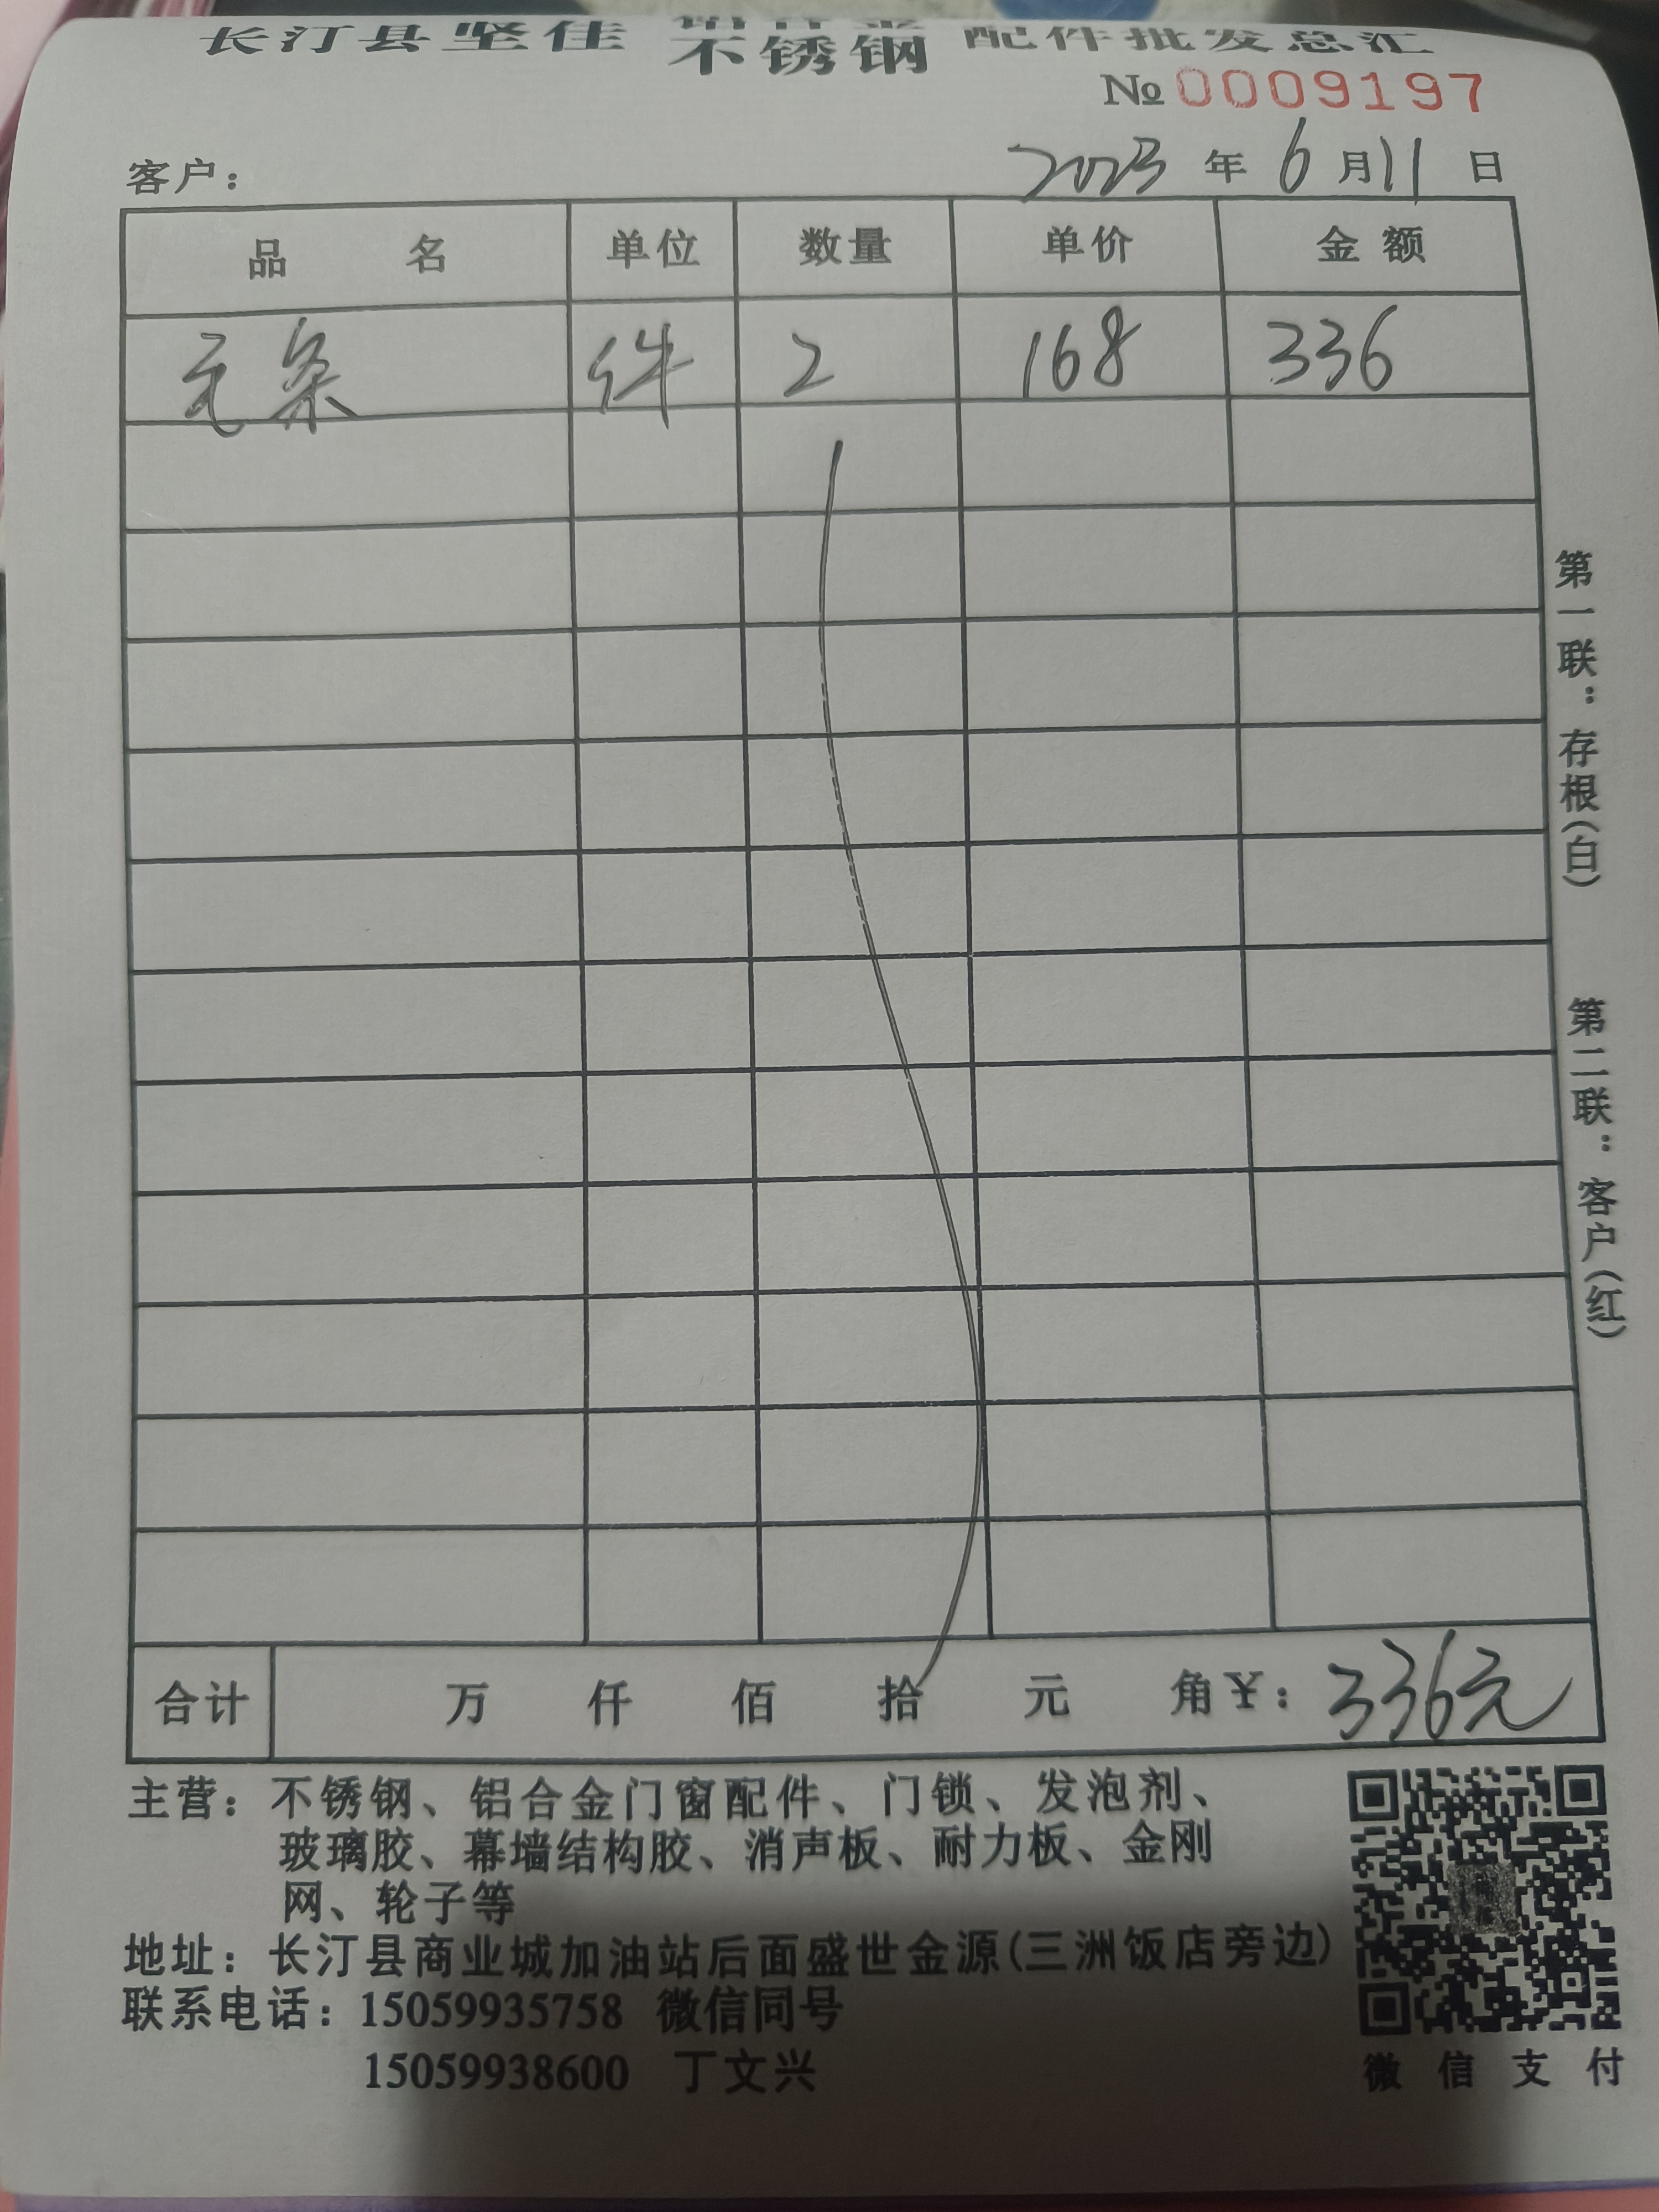 长汀县坚佳 铝合金 不锈钢 配件批发总汇
№0009197
客户： 2023 年 6 月 11 日
品名 单位 数量 单价 金额
毛条 件 2 168 336
合计 万 仟 佰 拾 元 角￥：336元
主营：不锈钢、铝合金门窗配件、门锁、发泡剂、
玻璃胶、幕墙结构胶、消声板、耐力板、金刚
网、轮子等
地址：长汀县商业城加油站后面盛世金源(三洲饭店旁边)
联系电话：15059935758 微信同号
15059938600 丁文兴
微信支付
第一联：存根(白)
第二联：客户(红)